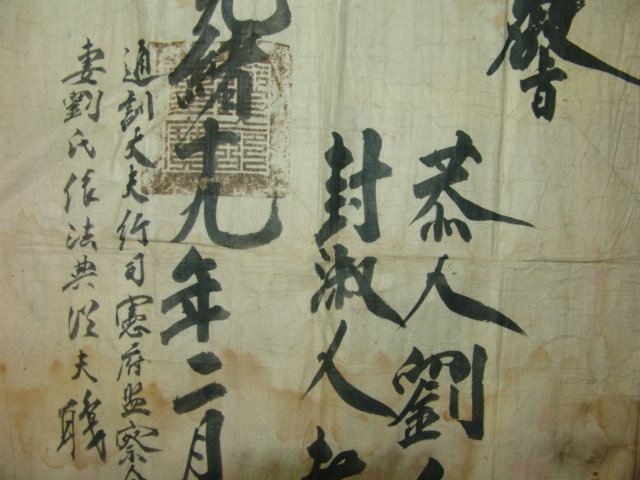 旨
恭人劉
封淑人者
光緖十九年二月
通訓大夫行司憲府監察
妻劉氏依法典從夫職